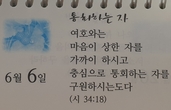 통회하는 자
여호와는
마음이 상한 자를
가까이 하시고
충심으로 통회하는 자를
구원하시는도다
(시 34:18)
6월 6일